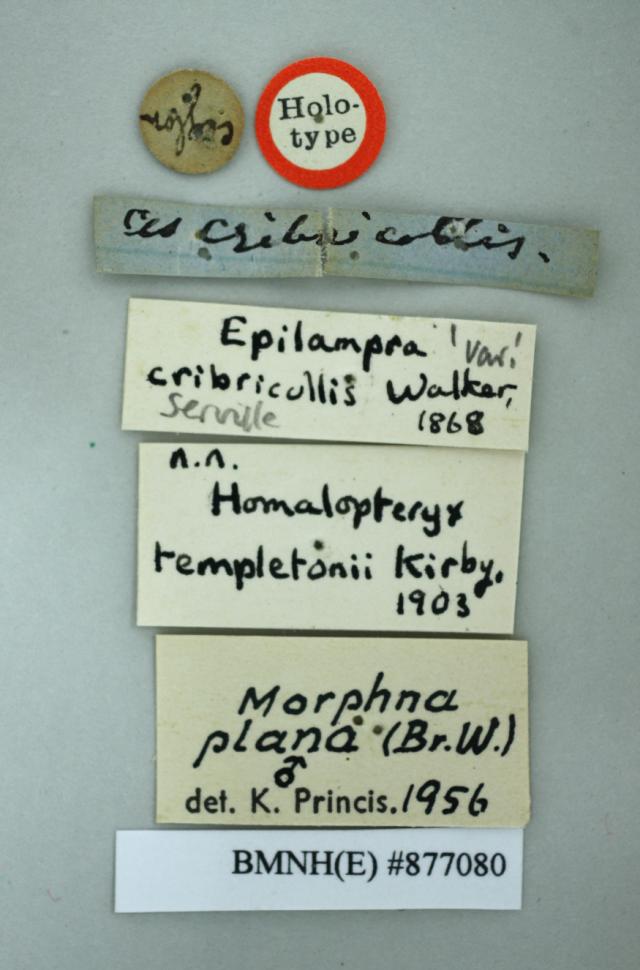 Ceylon
Holo-
type
cribricollis.
Epilampra 'var!
cribricollis Walker,
Serville 1868
n.n.
Homalopteryx
templetonii Kirby,
1903
Morphna
plana (Br.W.)
♂
det. K. Princis. 1956
BMNH(E) #877080